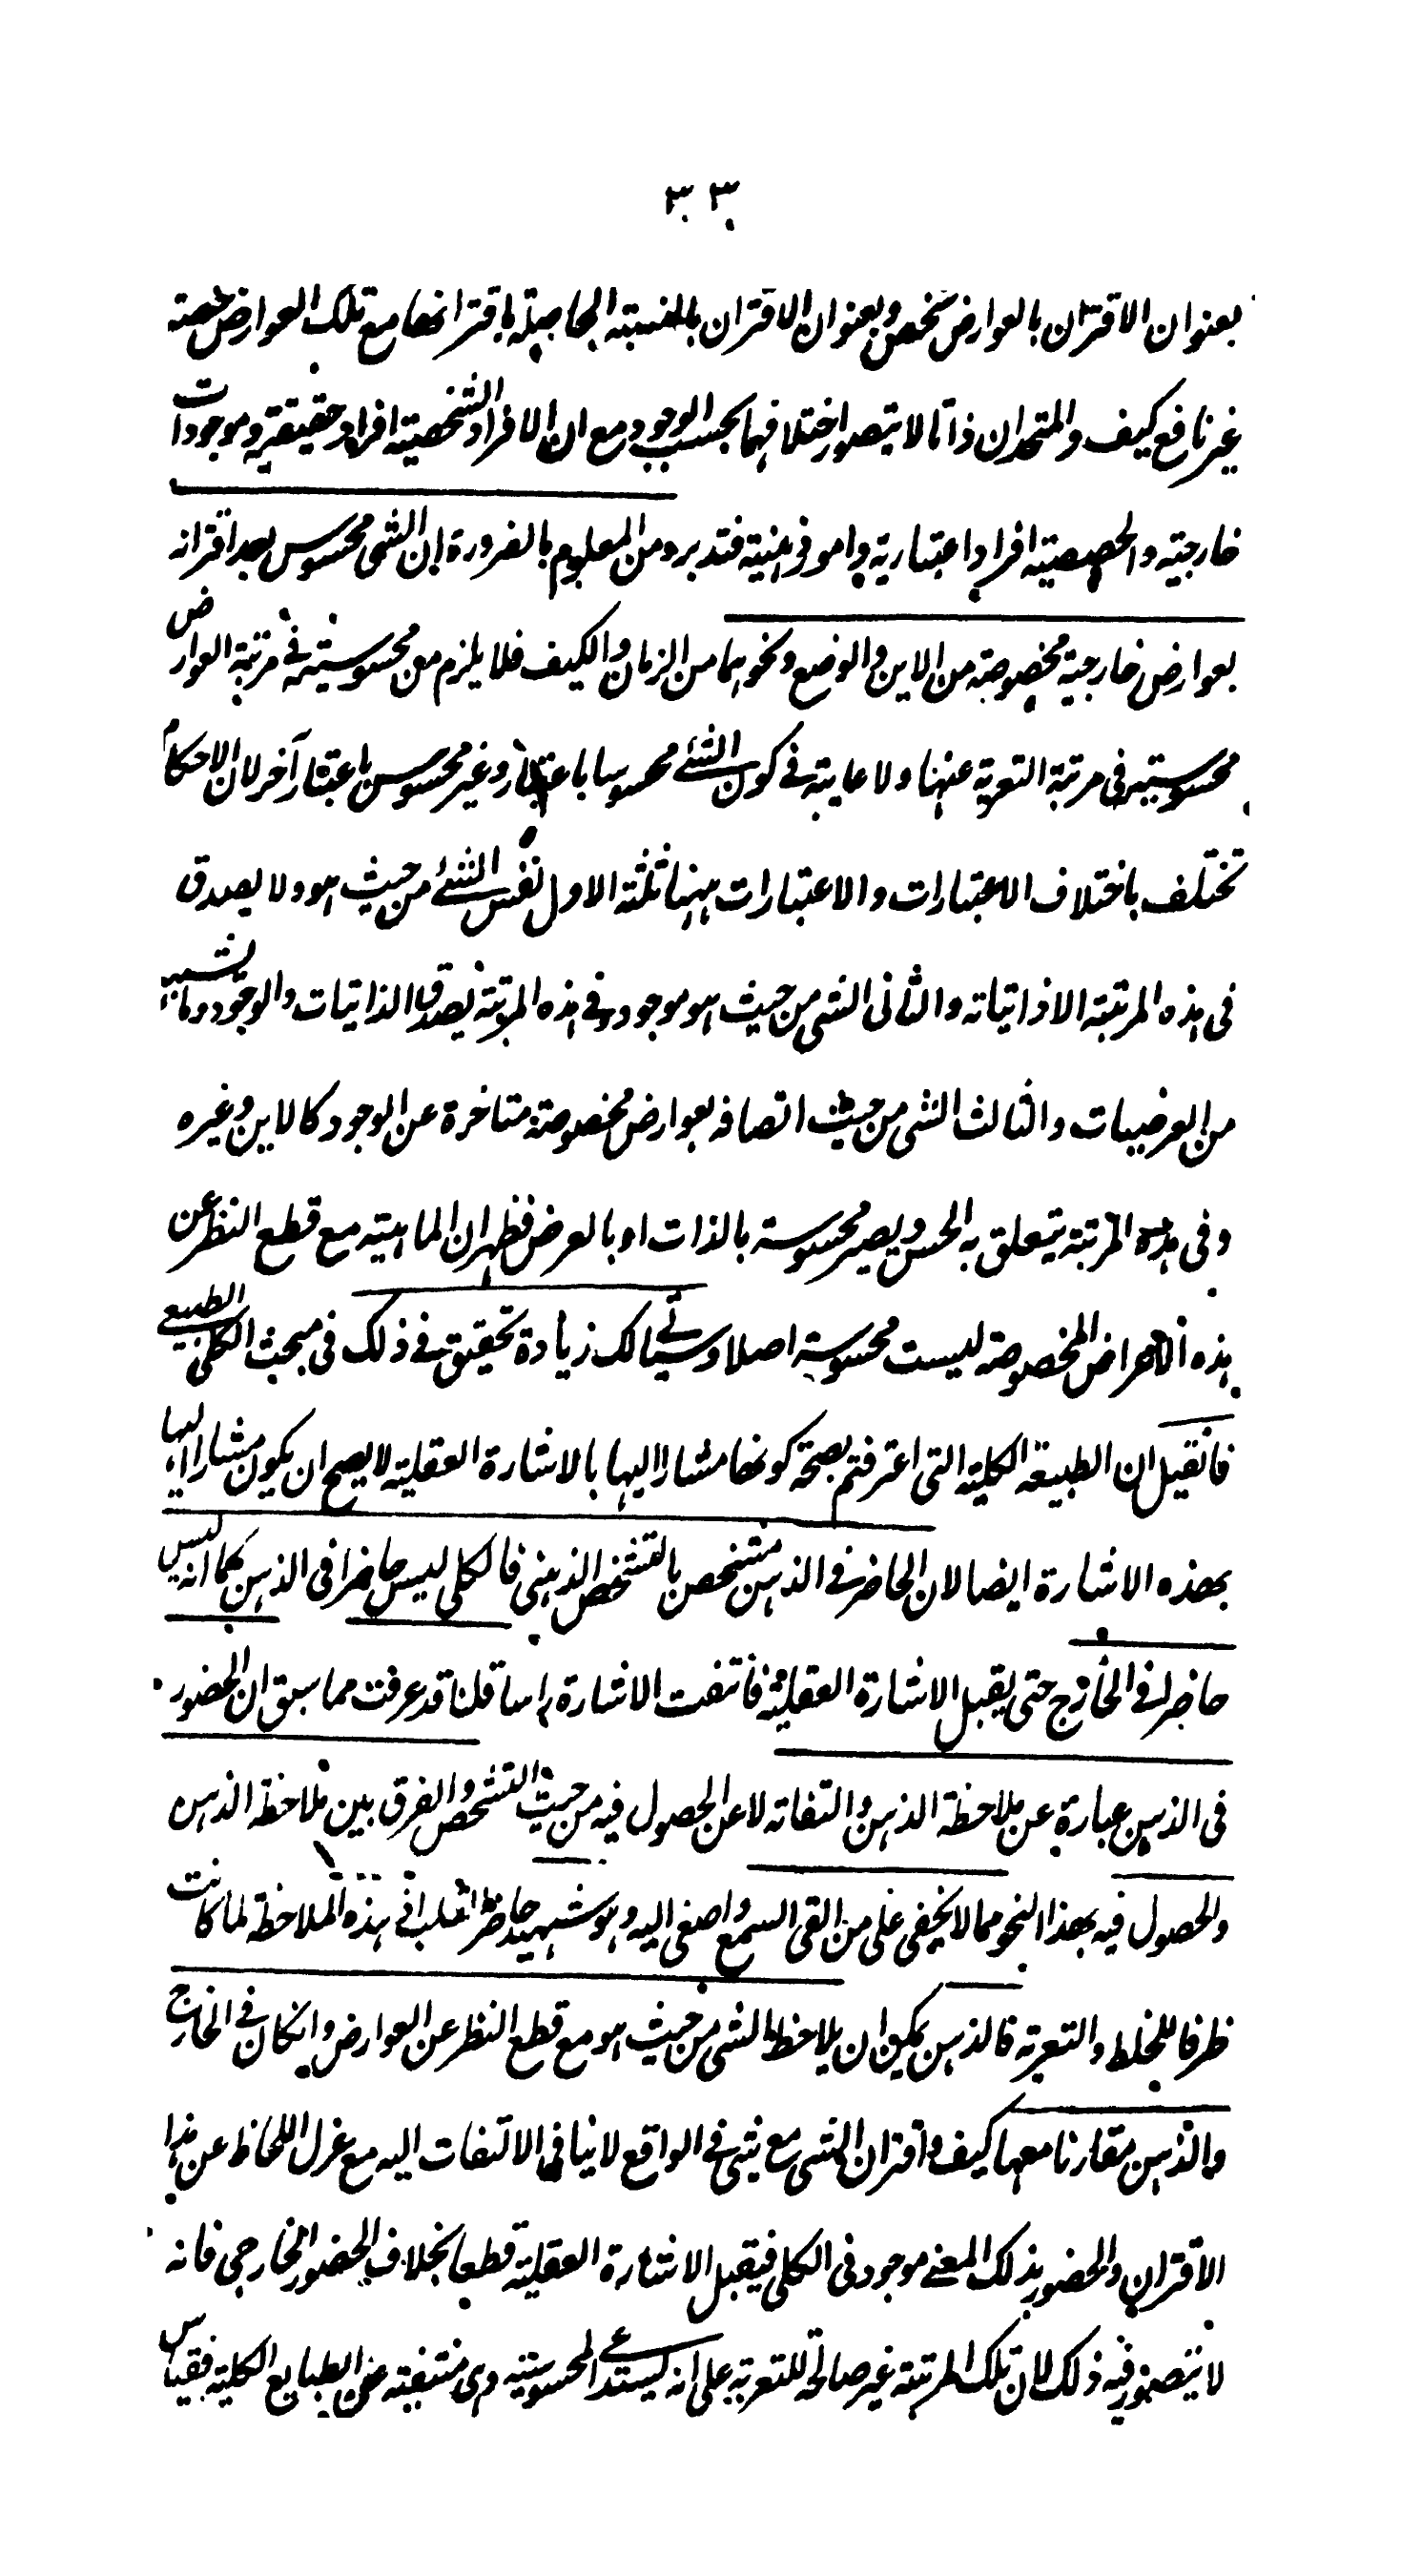 ٣٣
بعنوان الاقتران بالعوارض شخص وبعنوان الاقتران بالنسبته الحاصلة باقترانها مع تلك العوارض حصته
غير نافع كيف والمتحدان ذاتا لا يتصور اختلافهما بحسب الوجود مع ان الافراد الشخصيته افراد حقيقية وموجودات
خارجيته والحصصيته افراد اعتبارية وامور ذهنية فتدبر ومن المعلوم بالضرورة ان الشى محسوس بعد اقترانه
بعوارض خارجية مخصوصة من الاين والوضع ونحوهما من الزمان والكيف فلا يلزم من محسوسيته فى مرتبة العوارض
محسوسيته فى مرتبة التعرية عنها ولا عايبة فى كون الشئ محسوسا باعتبار وغير محسوس باعتبار آخر لان الاحكام
تختلف باختلاف الاعتبارات والاعتبارات ههنا ثلثة الاول نفس الشئ من حيث هو ولا يصدق
فى هذه المرتبة الا ذاتياته والثانى الشى من حيث هو موجود وفى هذه المرتبة يصدق الذاتيات والوجود وما يشبهه
من العرضيات والثالث الشى من حيث اتصافه بعوارض مخصوصة متاخرة عن الوجود كالاين وغيره
وفى هذه المرتبة يتعلق به الحس ويصير محسوسة بالذات او بالعرض فظهر ان الماهيته مع قطع النظر عن
هذه الاعراض المخصوصة ليست محسوسة اصلا وسياتى لك زيادة تحقيق فى ذلك فى مبحث الكلى الطبيعى
فانقيل ان الطبيعة الكلية التى اعترفتم بصحة كونها مشارا اليها بالاشارة العقلية لا يصح ان يكون مشارا اليها
بهذه الاشارة ايضا لان الحاضر فى الذهن متشخص بالتشخص الذهنى فالكلى ليس حاضرا فى الذهن كما انه ليس
حاضرا فى الخارج حتى يقبل الاشارة العقلية فانتفت الاشارة راسا قلنا قد عرفت مما سبق ان الحضور
فى الذهن عبارة عن ملاحظة الذهن والتفاته لا عن الحصول فيه من حيث التشخص والفرق بين ملاحظة الذهن
والحصول فيه بهذا النحو مما لا يخفى على من القى السمع واصغى اليه وهو شهيد حاضر القلب فى هذه الملاحظة لما كانت
ظرفا للخلط والتعرية فالذهن يمكن ان يلاحظ الشى من حيث هو مع قطع النظر عن العوارض وانكان فى الخارج
والذهن مقارنا معها كيف واقتران الشى مع شى فى الواقع لا ينافى الالتفات اليه مع غزل اللحاظ عن هذا
الاقتران والحضور بذلك المعنى موجود فى الكلى فيقبل الاشارة العقلية قطعا بخلاف الحضور الخارجى فانه
لا يتصور فيه ذلك لان تلك المرتبة غير صالحة للتعرية على انه يستدعى المحسوسيته وهى منتفيته عن الطبايع الكلية فقياس